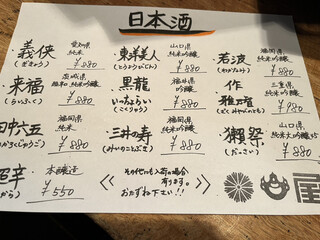 日本酒
・義侠 愛知県 純米
(ぎきょう) ¥880
・来福 茨城県
(らいふく) 純米吟醸 ¥880
田中六五 福岡県 純米
¥880
超辛 本醸造
¥550
・東洋美人 山口県 純米吟醸
(とうようびじん) ¥880
・黒龍
いっちょらい 吟醸
(こくりゅう) ¥880
・三井の寿 福岡県 純米吟醸
(みいのことぶき) ¥880
その他にも入荷の場合
有ります。
おたずね下さい!!
・若波 福岡県 純米吟醸
(わかなみ) ¥880
・作 三重県
雅乃智 純米吟醸
¥980
・獺祭 山口県
(だっさい) 純米大吟醸45
¥880
屋